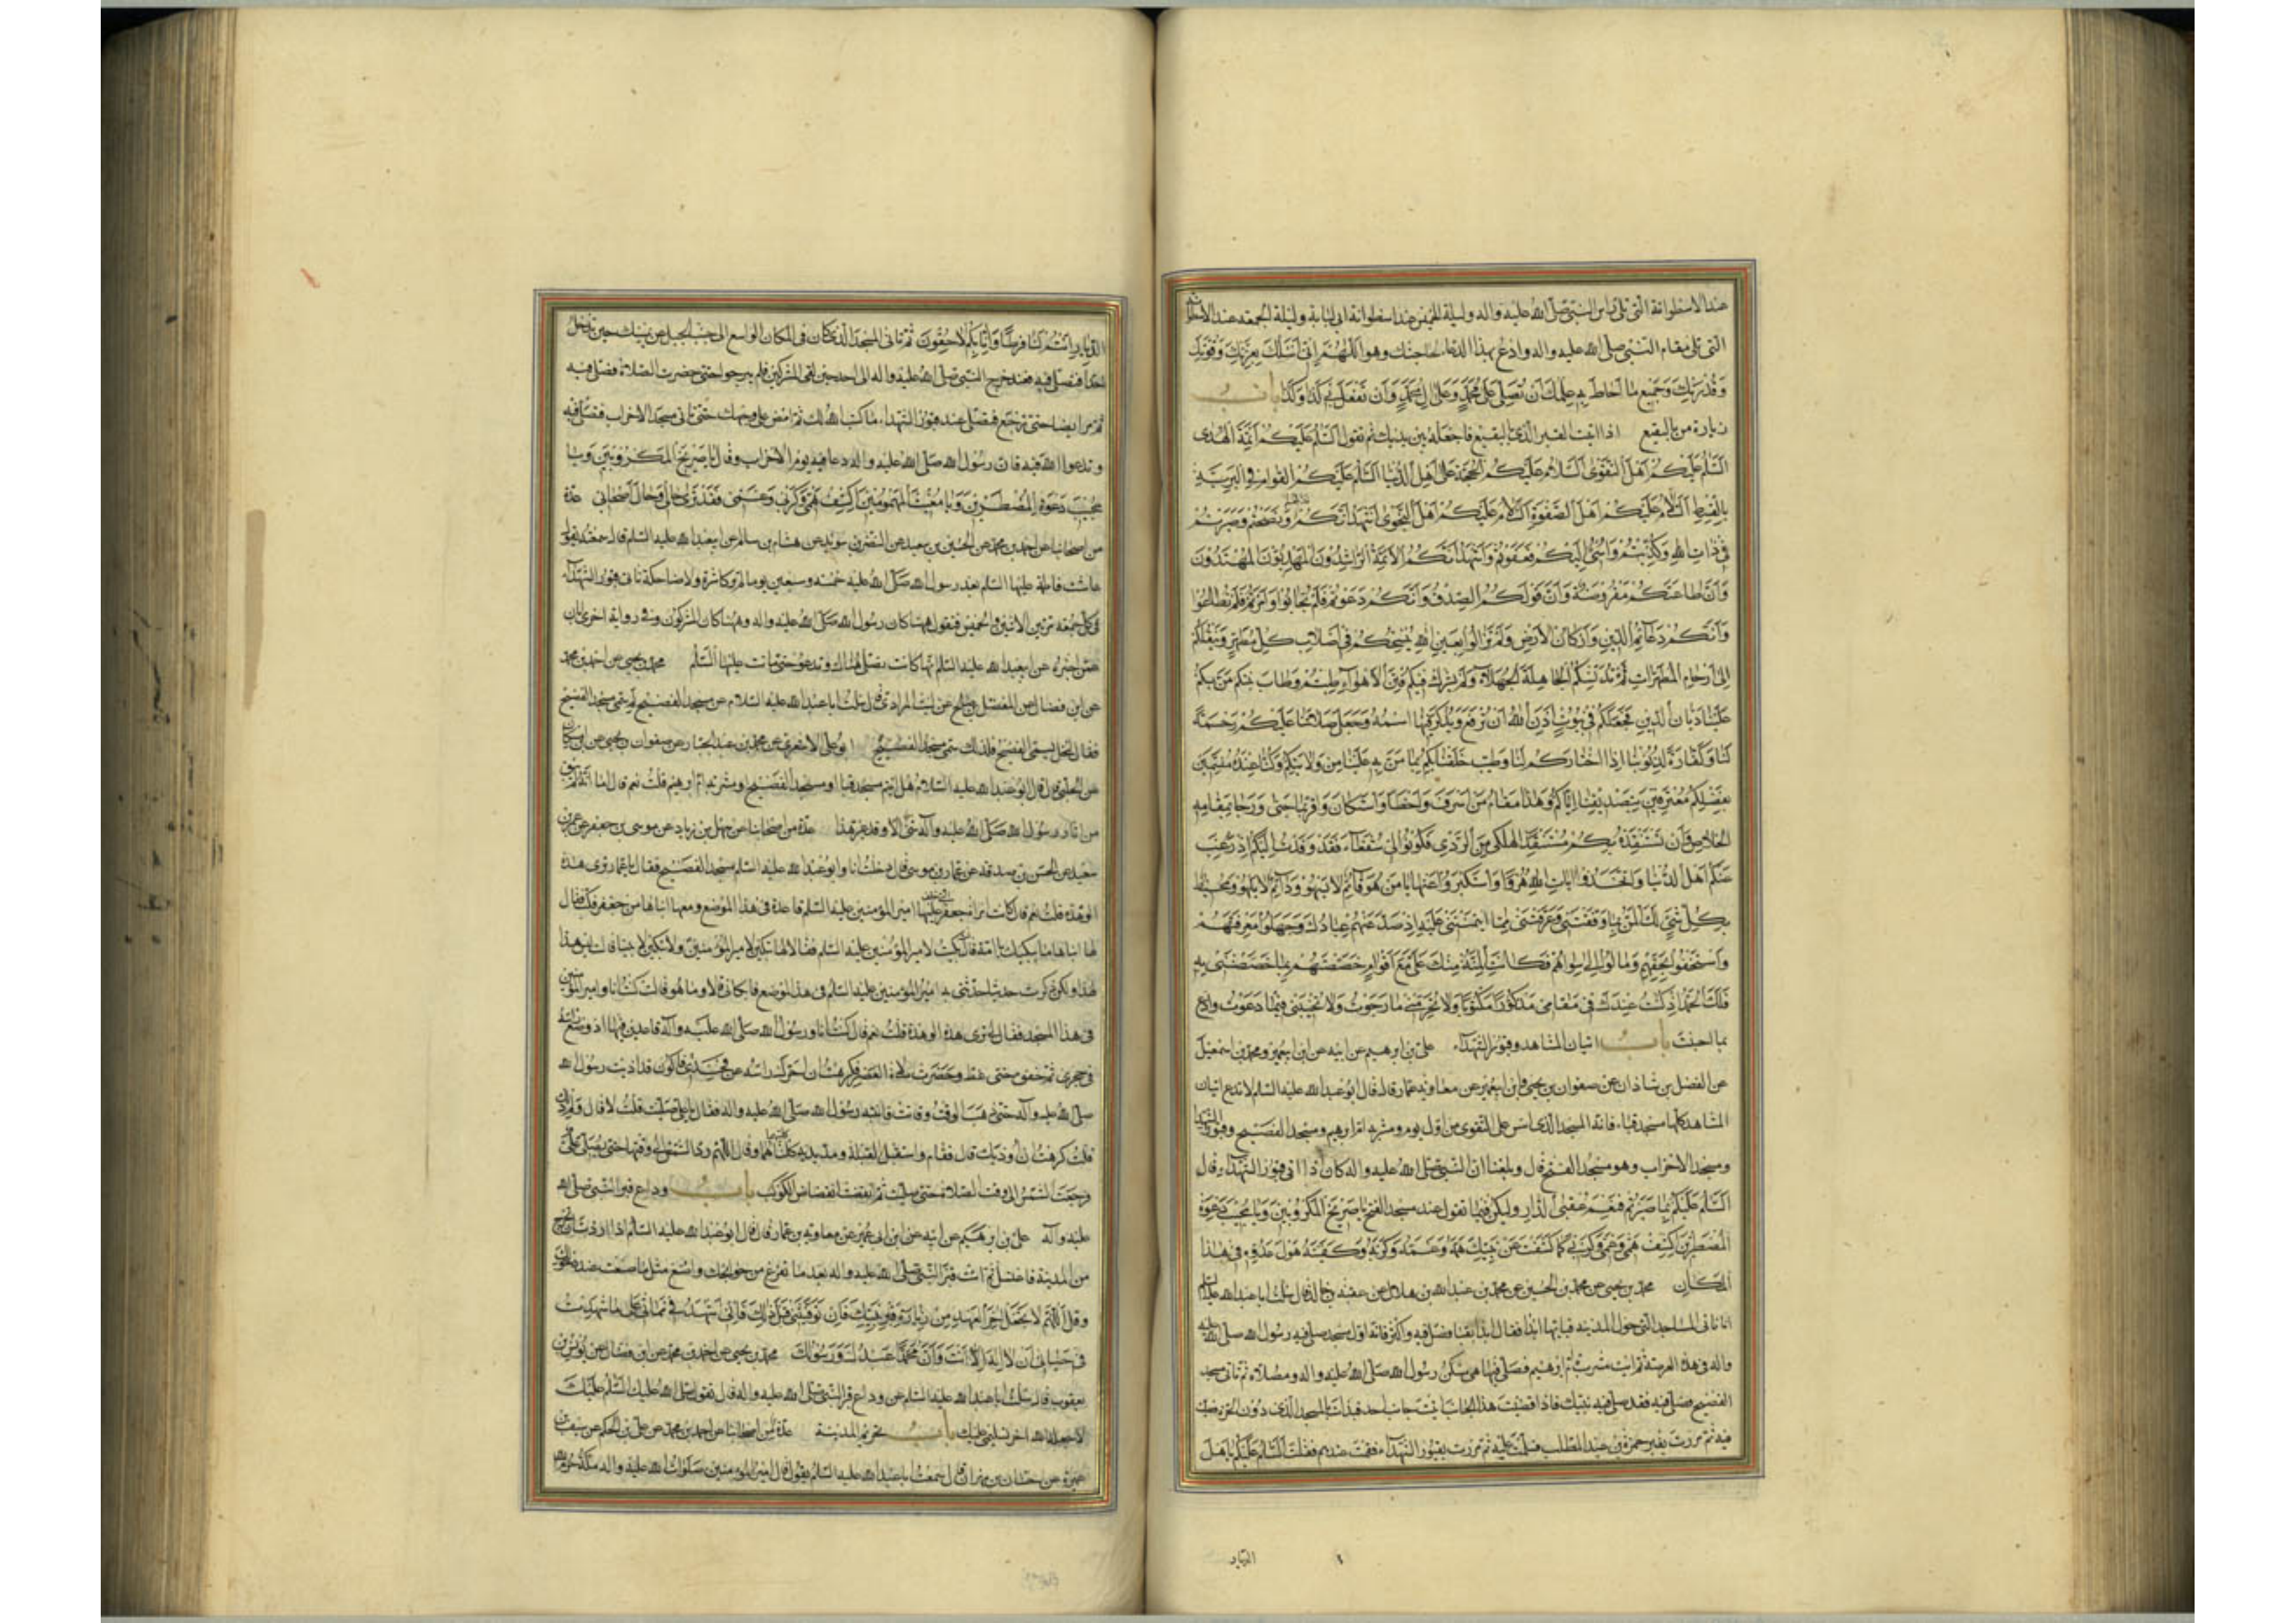 عند الاسطوانة التي تلي راس النبي صلى الله عليه واله وليلة الخميس عند اسطوانة ابي لبابة وليلة الجمعة عند الاسطوانة
التي تلي مقام النبي صلى الله عليه واله وادع بهذا الدعاء لحاجتك وهو اللهم اني اسئلك بعزتك وقوتك
وقدرتك وجميع ما احاط به علمك ان تصلي على محمد وعلى ال محمد وان تفعل بي كذا وكذا باب
زيارة من بالبقيع اذا اتيت القبر الذي بالبقيع فاجعله بين يديك ثم تقول السلم عليكم ائمة الهدى
السلم عليكم اهل التقوى السلام عليكم الحجة على اهل الدنيا السلم عليكم القوام في البرية
بالقسط السلام عليكم اهل الصفوة السلام عليكم اهل النجوى اشهد انكم قد بلغتم ونصحتم وصبرتم
في ذات الله وكذبتم واسئ اليكم فعفوتم واشهد انكم الائمة الراشدون المهديون المهتدون
وان طاعتكم مفروضة وان قولكم الصدق وانكم دعوتم فلم تجابوا وامرتم فلم تطاعوا
وانكم دعائم الدين واركان الارض ولم تزالوا بعين الله ينسخكم في اصلاب كل مطهر وينقلكم
الى ارحام المطهرات لم تدنسكم الجاهلية الجهلاء ولم تشرك فيكم فتن الاهواء طبتم وطاب منبتكم من بكم
علينا ديان الدين فجعلكم في بيوت اذن الله ان ترفع ويذكر فيها اسمه وجعل صلاتنا عليكم رحمة
لنا وكفارة لذنوبنا اذا اختاركم لنا وطيب خلقنا بكم بما من به علينا من ولايتكم وكنا عنده مسمين
بفضلكم معترفين بتصديقنا اياكم وهذا مقام من اسرف واخطأ واستكان واقر بما جنى ورجا بمقامه
الخلاص وان تستنقذه بكم مستنقذ الهلكى من الردى فكونوا لي شفعاء فقد وفدت اليكم اذ رغب
عنكم اهل الدنيا واتخذوا ايات الله هزوا واستكبروا عنها يا من هو قائم لا يسهو ودائم لا يلهو ومحيط
بكل شئ لك المن بما وفقتني وعرفتني بما ائتمنتني عليه اذ صد عنهم عبادك وجهلوا معرفتهم
واستخفوا بحقهم ومالوا الى سواهم فكانت المنة منك علي مع اقوام خصصتهم بما خصصتني به
فلك الحمد اذ كنت عندك في مقامي مذكورا مكتوبا ولا تحرمني ما رجوت ولا تخيبني فيما دعوت وادع
بما احببت باب اتيان المشاهد وقبور الشهداء علي بن ابرهيم عن ابيه عن ابن ابي عمير ومحمد بن اسمعيل
عن الفضل بن شاذان عن صفوان بن يحيى وابن ابي عمير عن معاوية بن عمار قال قال ابو عبد الله عليه السلم لا تدع اتيان
المشاهد كلها مسجد قباء فانه المسجد الذي اسس على التقوى من اول يوم ومشربة ام ابرهيم ومسجد الفضيح وقبور الشهداء
ومسجد الاحزاب وهو مسجد الفتح قال وبلغنا ان النبي صلى الله عليه واله كان اذا اتى قبور الشهداء قال
السلم عليكم بما صبرتم فنعم عقبى الدار وليكن فيما تقول عند مسجد الفتح يا صريخ المكروبين ويا مجيب دعوة
المضطرين اكشف همي وغمي وكربي كما كشفت عن نبيك همه وغمه وكربه وكفيته هول عدوه في هذا
المكان محمد بن يحيى عن محمد بن الحسين عن محمد بن عبد الله بن هلال عن عقبة بن خالد قال سئلت ابا عبد الله عليه السلم
انا ناتي المساجد التي حول المدينة فبايها ابدأ فقال ابدأ بقبا فصل فيه واكثر فانه اول مسجد صلى فيه رسول الله صلى الله عليه
واله في هذه العرصة ثم ائت مشربة ام ابرهيم فصل فيها هي مسكن رسول الله صلى الله عليه واله ومصلاه ثم تاتي مسجد
الفضيح فصل فيه فقد صلى فيه نبيك فاذا قضيت هذا الجانب اتيت جانب احد فبدأت بالمسجد الذي دون الحرة فصليت
فيه ثم مررت بقبر حمزة بن عبد المطلب فسلمت عليه ثم مررت بقبور الشهداء فقمت عندهم فقلت السلم عليكم يا اهل
الديار
الديار انتم لنا فرط وانا بكم لاحقون ثم تاتي المسجد الذي كان في المكان الواسع الى جنب الجبل عن يمينك حين تدخل
احدا فتصلي فيه فعنده خرج النبي صلى الله عليه واله الى احد حين لقي المشركين فلم يبرحوا حتى حضرت الصلاة فصلى فيه
ثم مر ايضا حتى ترجع فتصلي عند قبور الشهداء ما كتب الله لك ثم امض على وجهك حتى تاتي مسجد الاحزاب فتصلي فيه
وتدعو الله فيه فان رسول الله صلى الله عليه واله دعا فيه يوم الاحزاب وقال يا صريخ المكروبين ويا
مجيب دعوة المضطرين ويا مغيث المهمومين اكشف همي وكربي وغمي فقد ترى حالي وحال اصحابي عدة
من اصحابنا عن احمد بن محمد عن الحسين بن سعيد عن النضر بن سويد عن هشام بن سالم عن ابي عبد الله عليه السلم قال سمعته يقول
عاشت فاطمة عليها السلم بعد رسول الله صلى الله عليه خمسة وسبعين يوما لم تر كاشرة ولا ضاحكة تاتي قبور الشهداء
في كل جمعة مرتين الاثنين والخميس فتقول ههنا كان رسول الله صلى الله عليه واله وههنا كان المشركون وفي رواية اخرى ابان
عمن اخبره عن ابي عبد الله عليه السلم انها كانت تصلي هناك وتدعو حتى ماتت عليها السلم محمد بن يحيى عن احمد بن محمد
عن ابن فضال عن المفضل بن صالح عن ليث المرادي قال سئلت ابا عبد الله عليه السلام عن مسجد الفضيح لم سمي مسجد الفضيح
فقال لنخل يسمى الفضيح فلذلك سمي مسجد الفضيح ابو علي الاشعري عن محمد بن عبد الجبار عن صفوان بن يحيى عن ابن مسكان
عن الحلبي قال قال ابو عبد الله عليه السلام هل اتيتم مسجد قبا او مسجد الفضيح او مشربة ام ابرهيم قلت نعم قال اما انه لم يبق
من اثار رسول الله صلى الله عليه وآله شئ الا وقد غير غير هذا عدة من اصحابنا عن سهل بن زياد عن موسى بن جعفر عن عمرو بن
سعيد عن الحسن بن صدقة عن عمار بن موسى قال دخلت انا وابو عبد الله عليه السلم مسجد الفضيح فقال يا عمار ترى هذه
الوهدة قلت نعم قال كانت امراة جعفر التي خلف عليها امير المؤمنين عليه السلم قاعدة في هذا الموضع ومعها ابناها من جعفر فبكت فقال
لها ابناها ما يبكيك يا امه قالت بكيت لامير المؤمنين عليه السلم فقالا لها تبكين لامير المؤمنين ولا تبكين لابينا قالت ليس هذا
لهذا ولكن ذكرت حديثا حدثني به امير المؤمنين عليه السلم في هذا الموضع فابكاني قالا وما هو قالت كنت انا وامير المؤمنين
في هذا المسجد فقال لي ترى هذه الوهدة قلت نعم قال كنت انا ورسول الله صلى الله عليه وآله قاعدين فيها اذ وضع راسه
في حجري ثم خفق حتى غط وحضرت صلاة العصر فكرهت ان احرك راسه عن فخذي فاكون قد اذيت رسول الله
صلى الله عليه وآله حتى ذهب الوقت وفاتت فانتبه رسول الله صلى الله عليه واله فقال يا علي صليت قلت لا قال ولم ذاك
قلت كرهت ان اوذيك قال فقام واستقبل القبلة ومد يديه كلتيهما وقال اللهم رد الشمس الى وقتها حتى يصلي علي
فرجعت الشمس الى وقت الصلاة حتى صليت ثم انقضت انقضاض الكوكب باب وداع قبر النبي صلى الله
عليه وآله علي بن ابرهيم عن ابيه عن ابن ابي عمير عن معاوية بن عمار قال قال ابو عبد الله عليه السلم اذا اردت ان تخرج
من المدينة فاغتسل ثم ائت قبر النبي صلى الله عليه واله بعد ما تفرغ من حوائجك واصنع مثل ما صنعت عند دخولك
وقل اللهم لا تجعله اخر العهد من زيارة قبر نبيك فان توفيتني قبل ذلك فاني اشهد في مماتي على ما شهدت
في حياتي ان لا اله الا انت وان محمدا عبدك ورسولك محمد بن يحيى عن احمد بن محمد عن ابن فضال عن يونس بن
يعقوب قال سئلت ابا عبد الله عليه السلم عن وداع قبر النبي صلى الله عليه واله قال تقول صلى الله عليك السلم عليك
لا جعله الله اخر تسليمي عليك باب تحريم المدينة عدة من اصحابنا عن احمد بن محمد عن علي بن الحكم عن سيف بن
عميرة عن حسان بن مهران قال سمعت ابا عبد الله عليه السلم يقول قال امير المؤمنين صلوات الله عليه واله مكة حرم الله